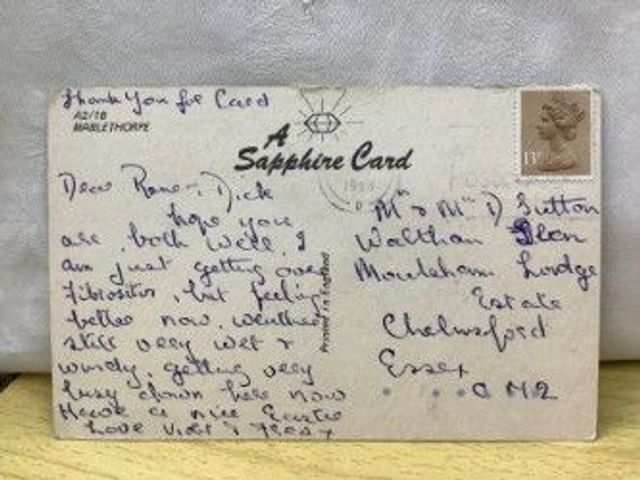 Thank You for Card
A2/18
MABLETHORPE
A
Sapphire Card
13
Dear Rene & Dick
hope you
are both well, I
am just getting over
Fibrositis, but feeling
better now, weather
still very wet &
windy, getting very
busy down here now
Have a nice Easter
Love
Printed in England
Mr & Mrs D Sutton
Waltham Glen
Moulsham Lodge
Estate
Chelmsford
Essex
CM2